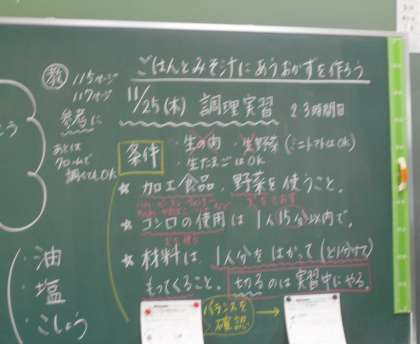 ごはんとみそ汁にあうおかずを作ろう
教 115ページ
117ページ
参考に
あとは
調べてもOK
11/25(木) 調理実習 23時間目
条件 ・生の肉 ・生野菜(ミニトマトはOK)
・生たまごはOK
★ 加工食品、野菜を使うこと。
★ コンロの使用は1人15分以内で。
★ 材料は、1人分をはかって
もってくること。切るのは実習中にやる。
バランスを
確認
・油
・塩
・こしょう